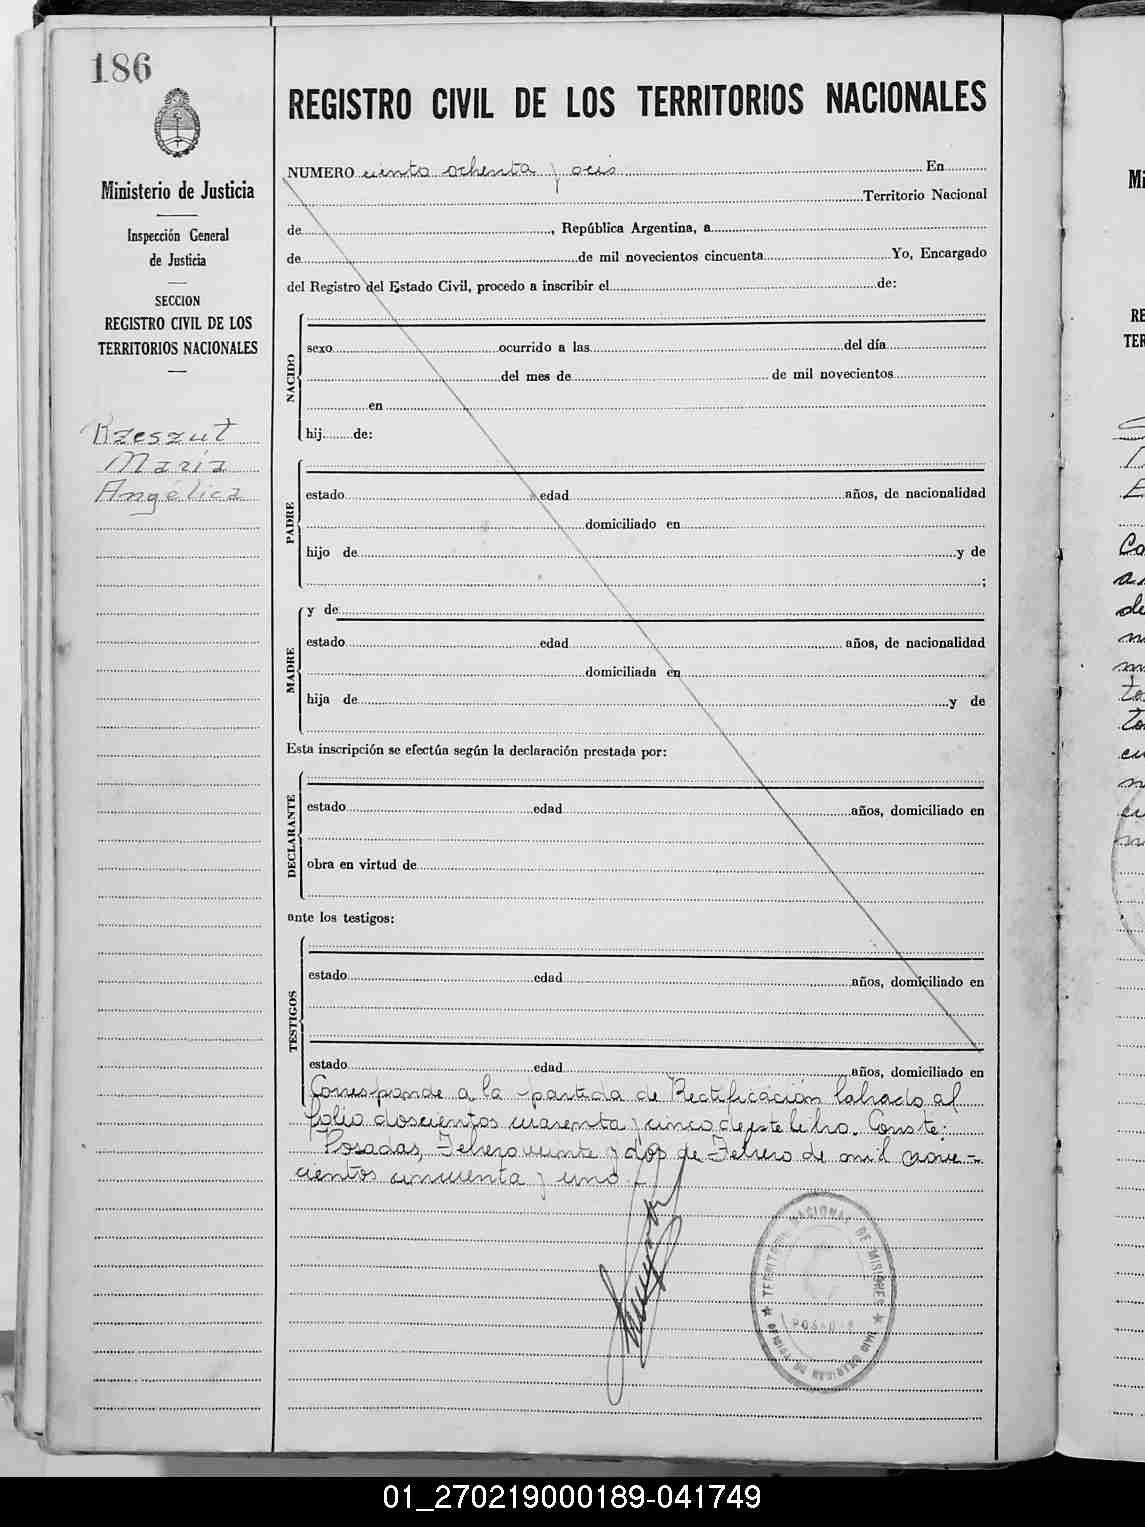 186
Ministerio de Justicia
Inspección General
de Justicia
SECCION
REGISTRO CIVIL DE LOS
TERRITORIOS NACIONALES
Rzeszut
María
Angélica
REGISTRO CIVIL DE LOS TERRITORIOS NACIONALES
NUMERO ciento ochenta y seis En
Territorio Nacional
de , República Argentina, a
de de mil novecientos cincuenta Yo, Encargado
del Registro del Estado Civil, procedo a inscribir el de:
NACIDO
sexo ocurrido a las del día
del mes de de mil novecientos
en
hij de:
PADRE
estado edad años, de nacionalidad
domiciliado en
hijo de y de
;
MADRE
y de
estado edad años, de nacionalidad
domiciliada en
hija de y de
Esta inscripción se efectúa según la declaración prestada por:
DECLARANTE
estado edad años, domiciliado en
obra en virtud de
ante los testigos:
TESTIGOS
estado edad años, domiciliado en
estado edad años, domiciliado en
Corresponde a la partida de Rectificación labrado al
folio doscientos cuarenta y cinco de este libro. Conste:
Posadas, Febrero veinte y dos de Febrero de mil nove-
cientos cincuenta y uno.-
TERRITORIO NACIONAL DE MISIONES
POSADAS
Mi
RE
TER
01_270219000189-041749